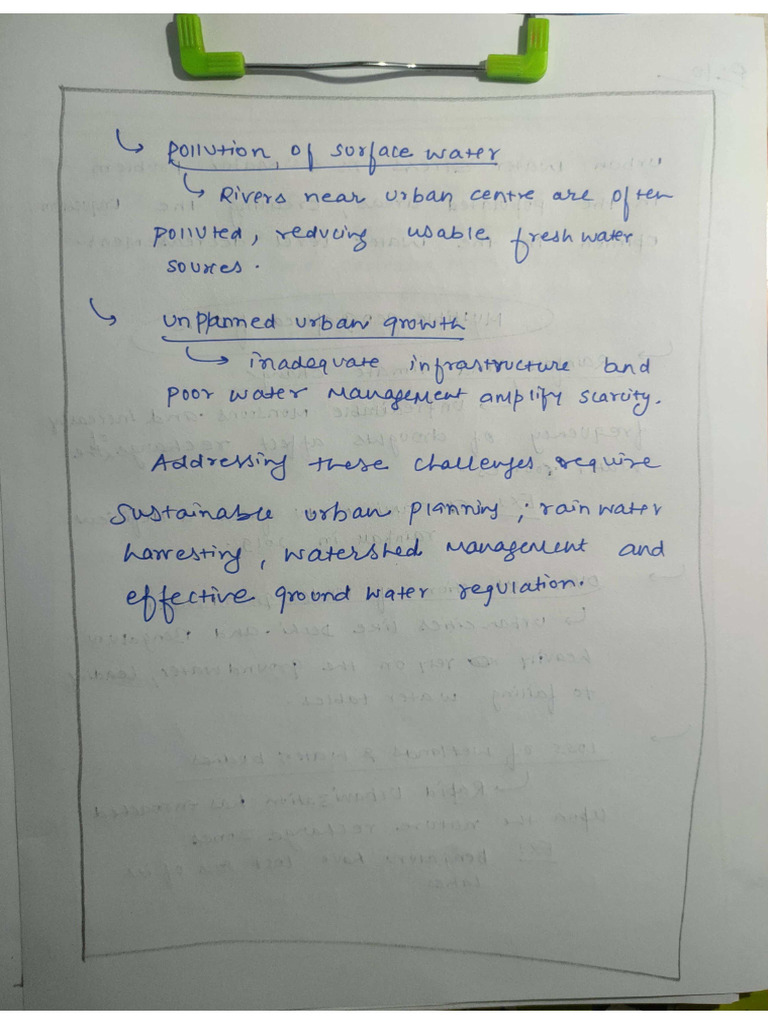 ↳ Pollution of surface water
↳ Rivers near urban centre are often
polluted, reducing usable fresh water
sources.
↳ unplanned urban growth
↳ inadequate infrastructure and
poor water management amplify scarcity.
Addressing these challenges require
sustainable urban planning, rain water
harvesting, watershed management and
effective ground water regulation.